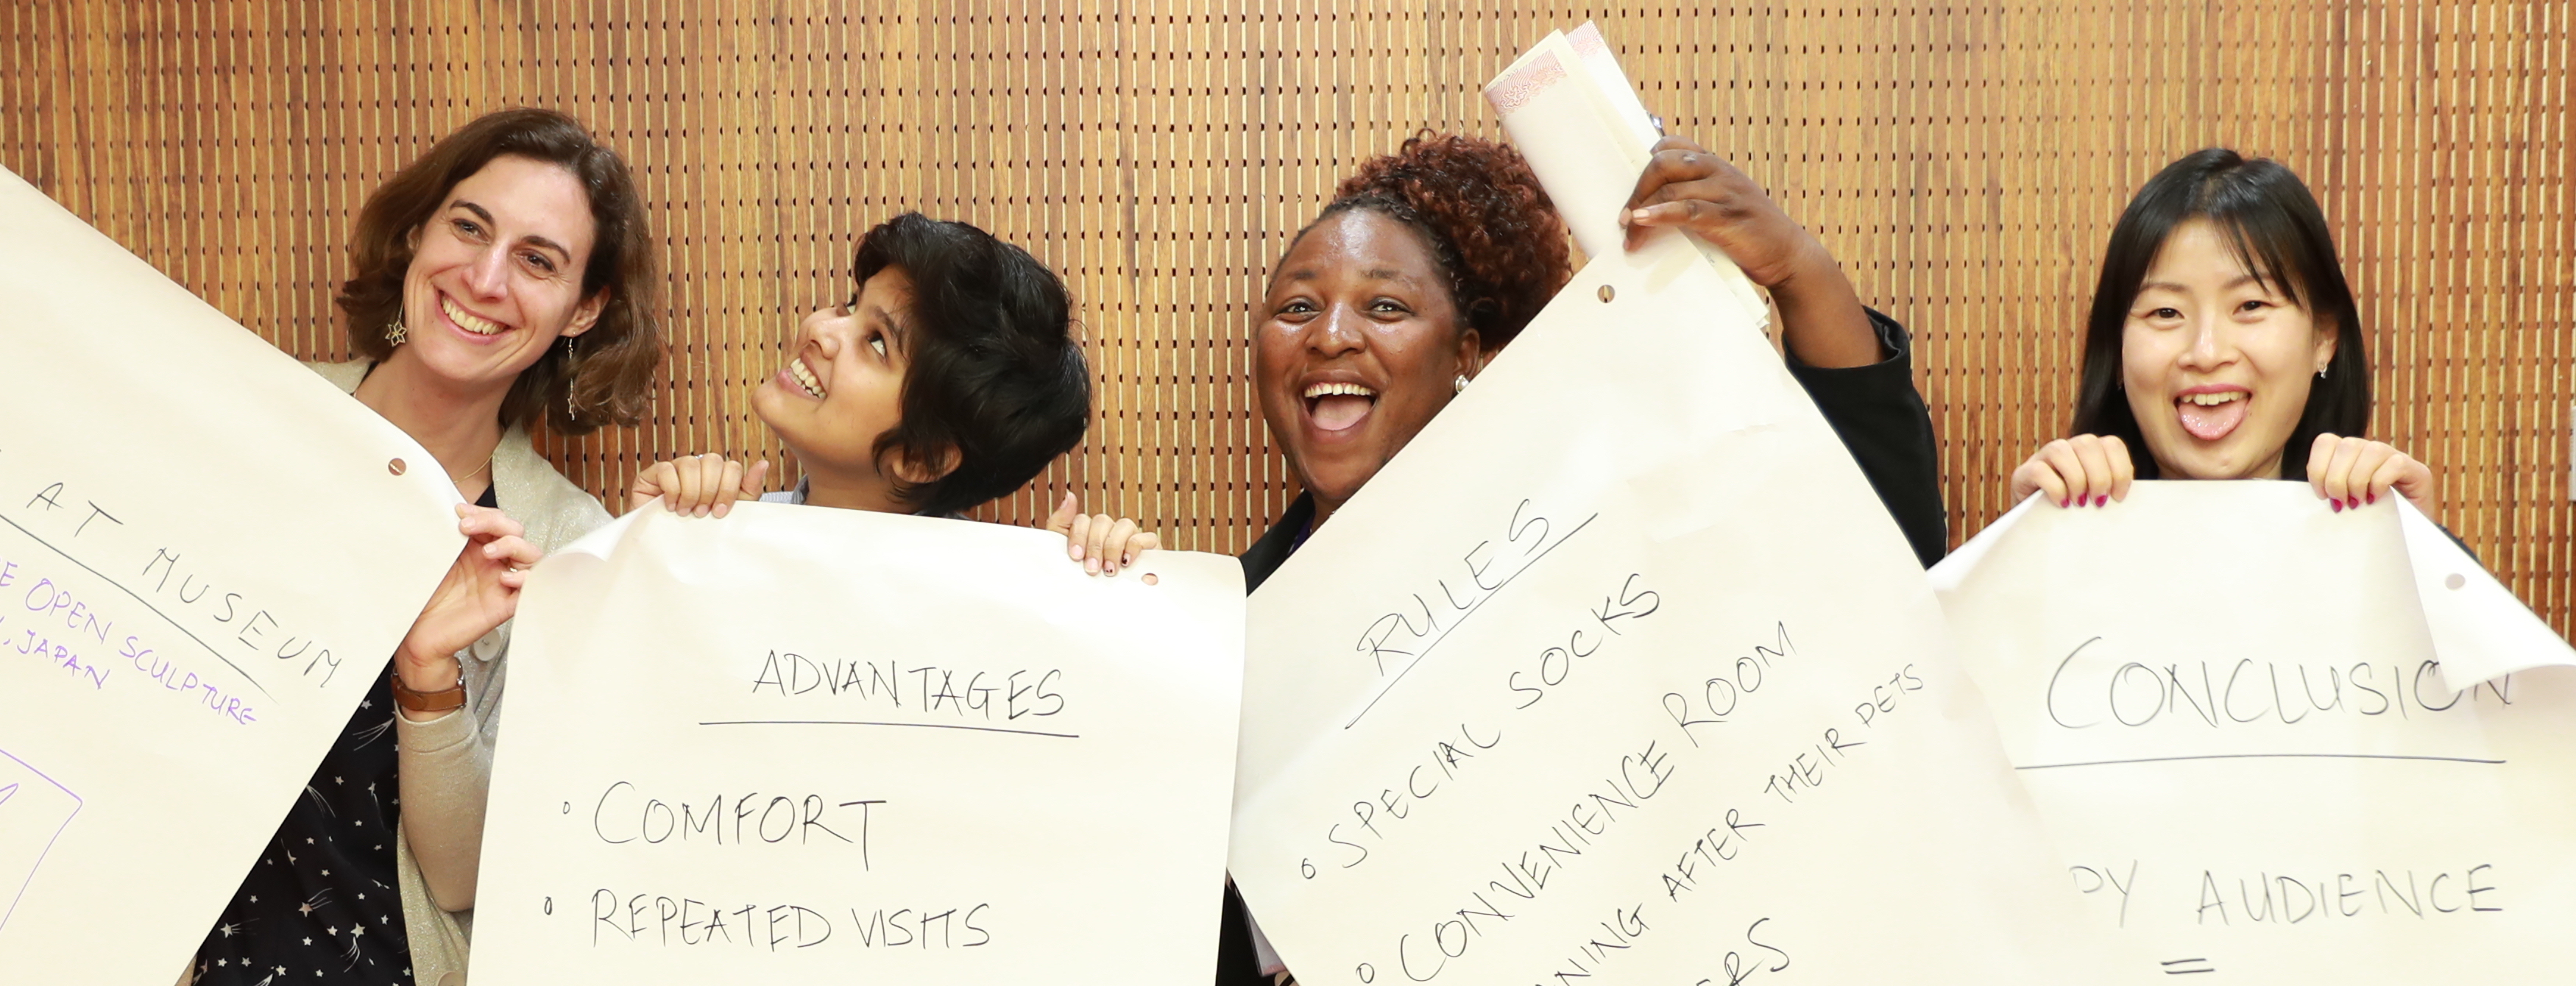 AT MUSEUM
OPEN SCULPTURE
, JAPAN
ADVANTAGES
° COMFORT
° REPEATED VISITS
RULES
° SPECIAL SOCKS
° CONVENIENCE ROOM
NING AFTER THEIR PETS
ERS
CONCLUSION
PY AUDIENCE
=